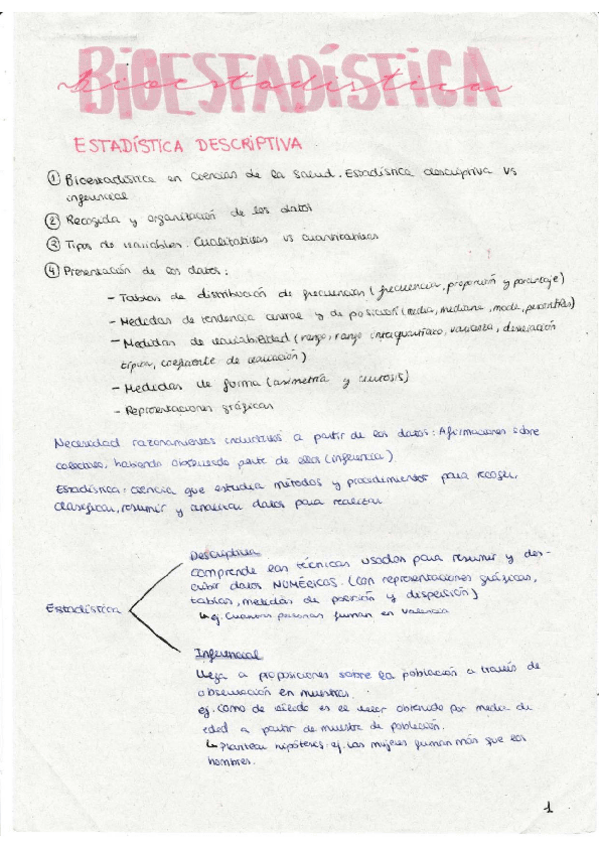 BIOESTADÍSTICA
bioestadística
ESTADÍSTICA DESCRIPTIVA
① Bioestadística en ciencias de la salud. Estadística descriptiva vs
inferencial
② Recogida y organización de los datos
③ Tipos de variables. Cualitativas vs cuantitativas
④ Presentación de los datos:
- Tablas de distribución de frecuencias (frecuencia, proporción y porcentaje)
- Medidas de tendencia central y de posición (media, mediana, moda, percentiles)
- Medidas de variabilidad (rango, rango intercuartílico, varianza, desviación
típica, coeficiente de variación)
- Medidas de forma (asimetría y curtosis)
- Representaciones gráficas
Necesidad razonamientos inductivos a partir de los datos: Afirmaciones sobre
colectivo, habiendo observado parte de ellos (inferencia)
Estadística: ciencia que estudia métodos y procedimientos para recoger,
clasificar, resumir y analizar datos para realizar
Estadística
Descriptiva
comprende las técnicas usadas para resumir y des-
cribir datos NUMÉRICOS. (con representaciones gráficas,
tablas, medidas de posición y dispersión)
↳ ej. Cuantas personas fuman en Valencia
Inferencial
llega a proposiciones sobre la población a través de
observación en muestras.
ej. como de válido es el valor obtenido por media de
edad a partir de muestra de población.
↳ Plantear hipótesis. ej. Las mujeres fuman más que los
hombres.
1